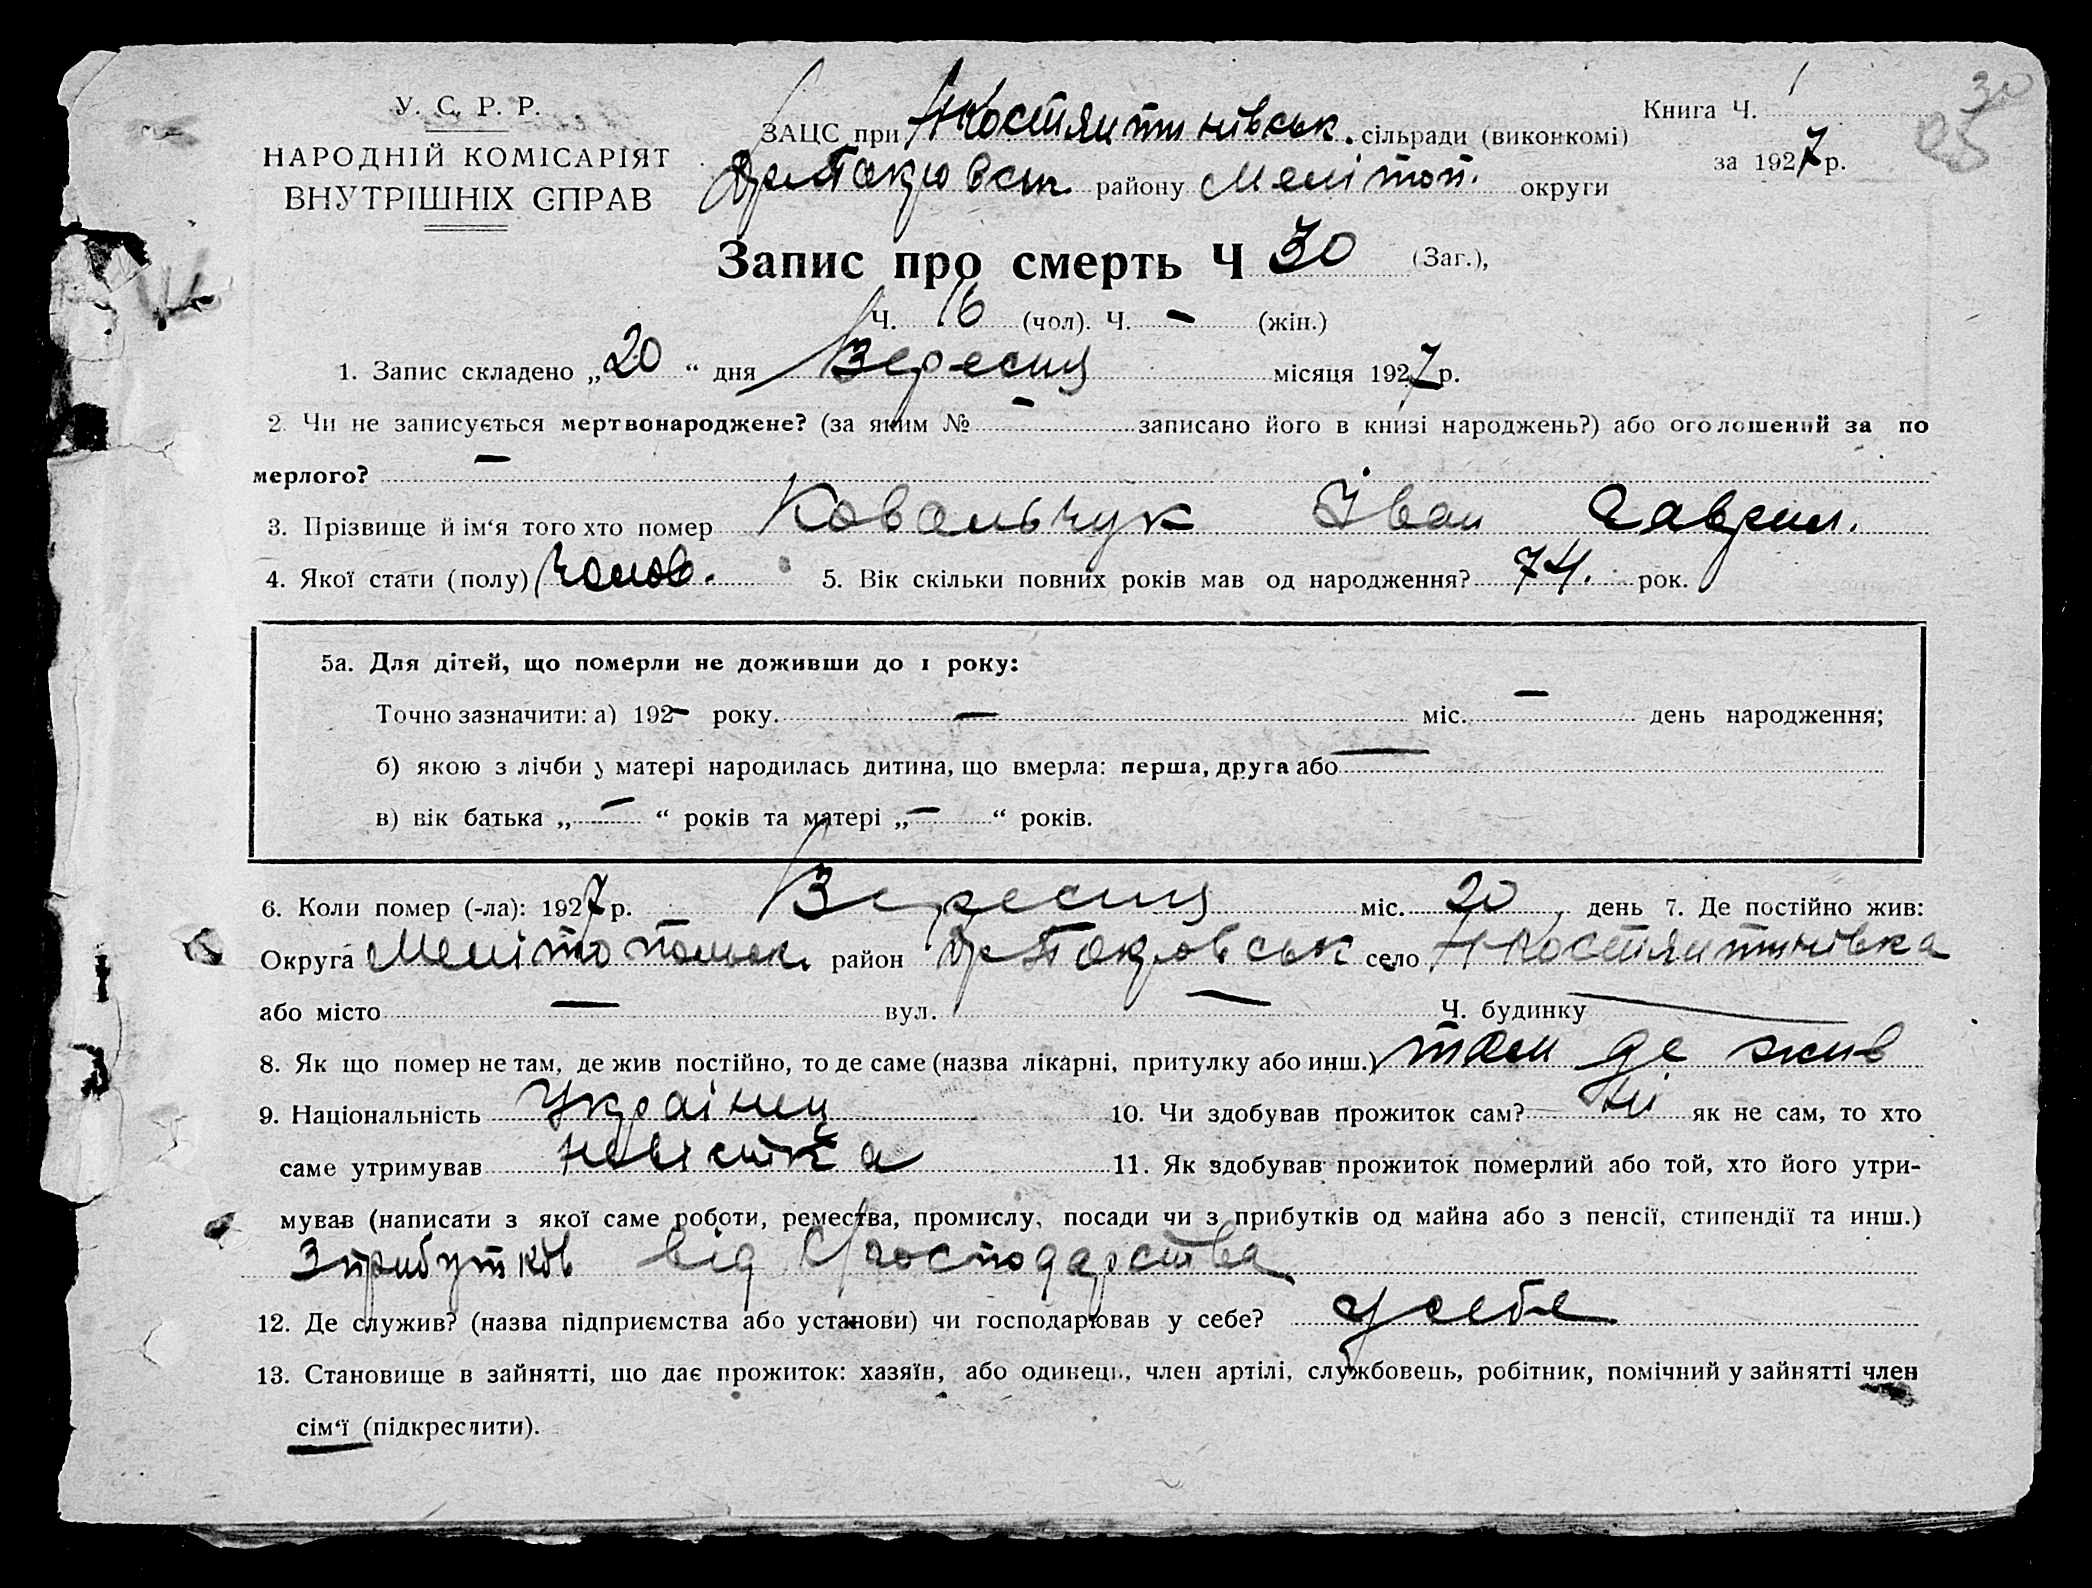 У. С. Р. Р.
НАРОДНІЙ КОМІСАРІЯТ
ВНУТРІШНІХ СПРАВ
Книга Ч. 1
30
за 1927 р.
ЗАЦС при Н Костянтинівськ. сільради (виконкомі)
Покровськ району Мелітоп. округи
Запис про смерть Ч 30 (Заг.),
Ч. 16 (чол). Ч. — (жін.)
1. Запис складено „20“ дня Вересня місяця 1927 р.
2. Чи не записується мертвонароджене? (за яким № — записано його в книзі народжень?) або оголошений за по
мерлого? —
3. Прізвище й ім‘я того хто помер Ковальчук Іван Гаврил.
4. Якої стати (полу) чолов. 5. Вік скільки повних років мав од народження? 74. рок.
5а. Для дітей, що померли не доживши до 1 року:
Точно зазначити: а) 192— року. — міс. — день народження;
б) якою з лічби у матері народилась дитина, що вмерла: перша, друга або —
в) вік батька „—“ років та матері „—“ років.
6. Коли помер (-ла): 1927 р. Вересня міс. 20 день 7. Де постійно жив:
Округа Мелітопольск. район Покровськ село Н Костянтинівка
або місто — вул. — Ч. будинку —
8. Як що помер не там, де жив постійно, то де саме (назва лікарні, притулку або инш.) там де жив
9. Національність Українец 10. Чи здобував прожиток сам? ні як не сам, то хто
саме утримував невістка 11. Як здобував прожиток померлий або той, хто його утри-
мував (написати з якої саме роботи, ремества, промислу, посади чи з прибутків од майна або з пенсії, стипендії та инш.)
З прибутків від с/господарства
12. Де служив? (назва підприємства або установи) чи господарював у себе? у себе
13. Становище в зайнятті, що дає прожиток: хазяїн, або одинець, член артілі, службовець, робітник, помічний у зайнятті член
сім‘ї (підкреслити).